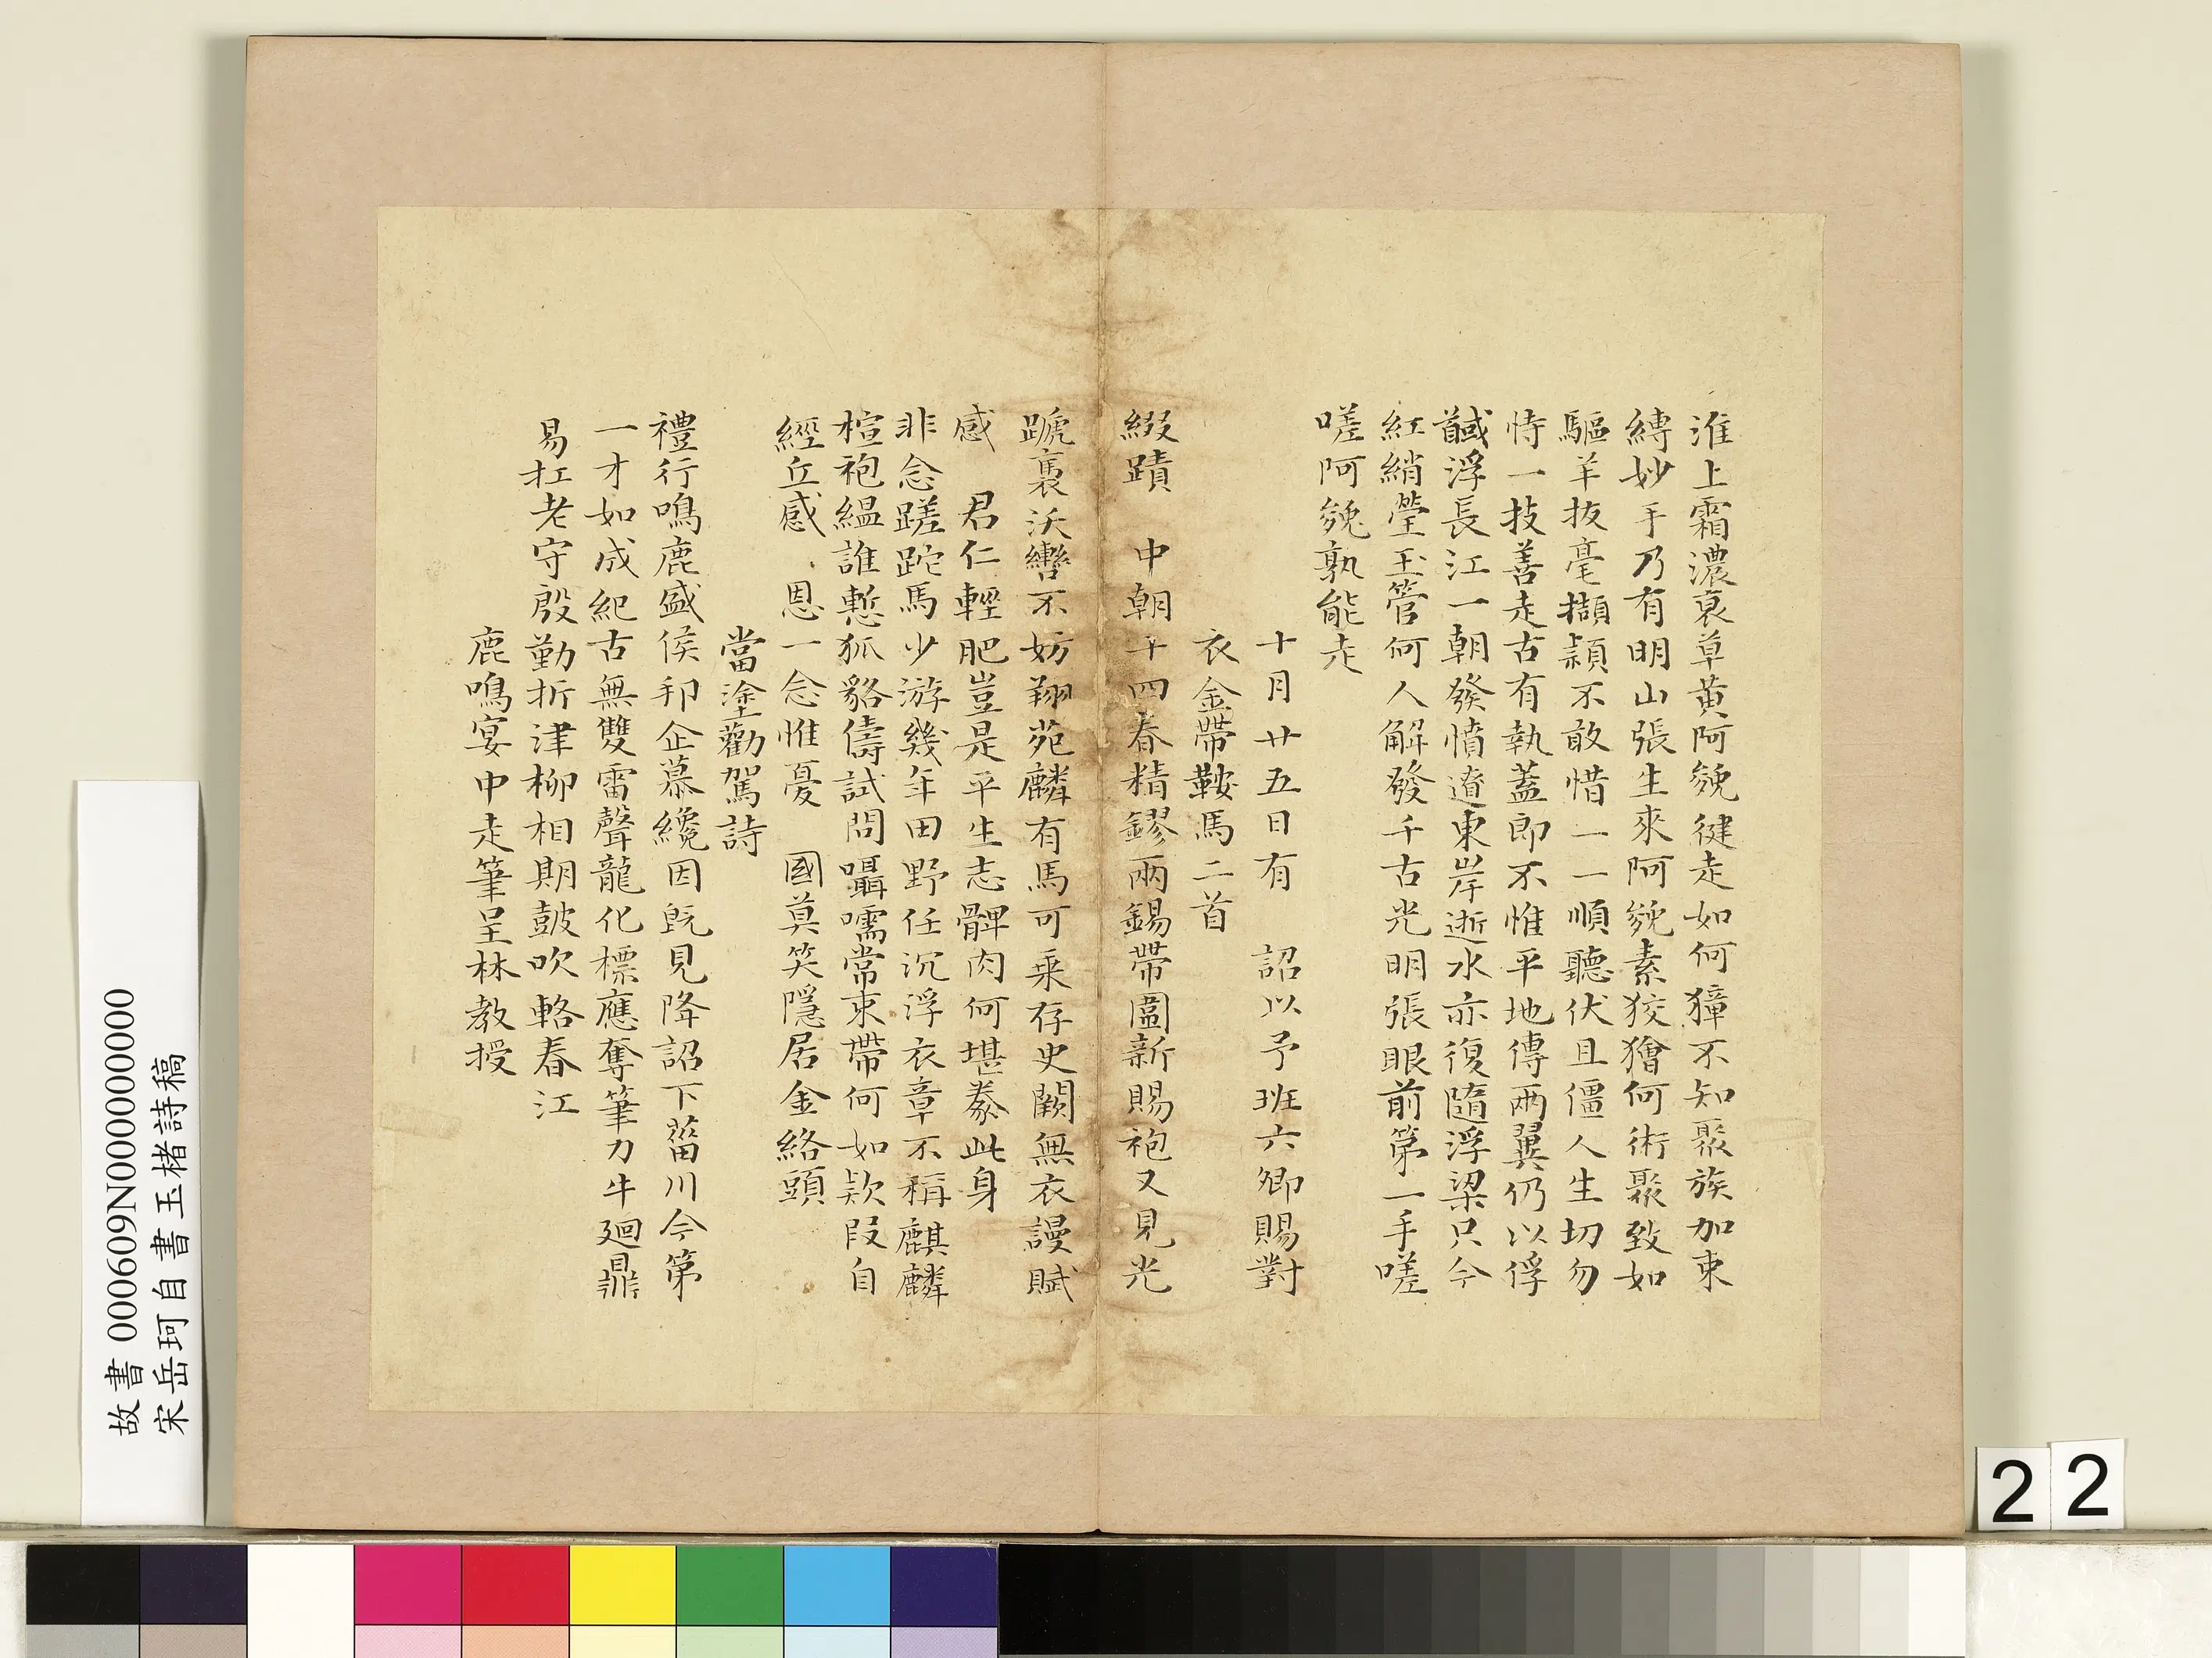 淮上霜濃裒草黄阿㕙徤走如何獐不知聚族加束
縛妙手乃有明山張生來阿㕙素狡獪何術聚致如
驅羊拔毫擷頴不敢惜一一順聽伏且僵人生切勿
恃一技善走古有執蓋即不惟平地傅兩翼仍以俘
馘浮長江一朝發憤遼東岸逝水亦復隨浮梁只今
紅綃瑩玉管何人解發千古光明張眼前第一手嗟
嗟阿㕙孰能走
十月廿五日有　詔以予班六卿賜對
衣金帶鞍馬二首
綴蹟　中朝十四春精鏐兩錫帶圍新賜袍又見光
蹏裏沃轡不妨翔苑麟有馬可乗存史闕無衣謾賦
感　君仁輕肥豈是平生志髀肉何堪豢此身
非念蹉跎馬少游幾年田野任沉浮衣章不稱麒麟
楦袍緼誰慙狐貉儔試問囁嚅常束帶何如欵段自
經丘感　恩一念惟憂　國莫笑隱居金絡頭
當塗勸駕詩
禮行鳴鹿盛侯邦企慕纔因旣見降詔下菑川今第
一才如成紀古無雙雷聲龍化標應奪筆力牛廻鼎
易扛老守殷勤折津柳相期鼓吹輅春江
鹿鳴宴中走筆呈林教授
故書 000609N000000000
宋岳珂自書玉楮詩稿
22